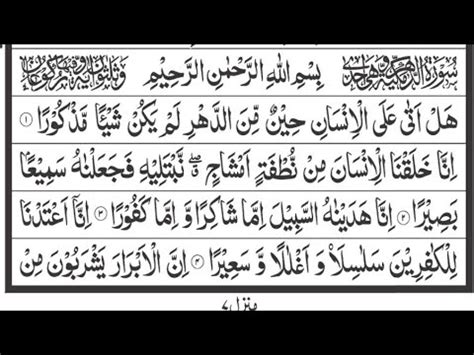 سُوْرَةُ الدَّهْرِ بِسْمِ اللهِ الرَّحْمٰنِ الرَّحِيْمِ
هَلْ اَتٰى عَلَى الْاِنْسَانِ حِيْنٌ مِّنَ الدَّهْرِ لَمْ يَكُنْ شَيْـًٔا مَّذْكُوْرًا ۝۱
اِنَّا خَلَقْنَا الْاِنْسَانَ مِنْ نُّطْفَةٍ اَمْشَاجٍ ۖ نَّبْتَلِيْهِ فَجَعَلْنٰهُ سَمِيْعًۢا
بَصِيْرًا ۝۲ اِنَّا هَدَيْنٰهُ السَّبِيْلَ اِمَّا شَاكِرًا وَّ اِمَّا كَفُوْرًا ۝۳ اِنَّاۤ اَعْتَدْنَا
لِلْكٰفِرِيْنَ سَلٰسِلَا۠ وَ اَغْلٰلًا وَّ سَعِيْرًا ۝۴ اِنَّ الْاَبْرَارَ يَشْرَبُوْنَ مِنْ
منزل ۷